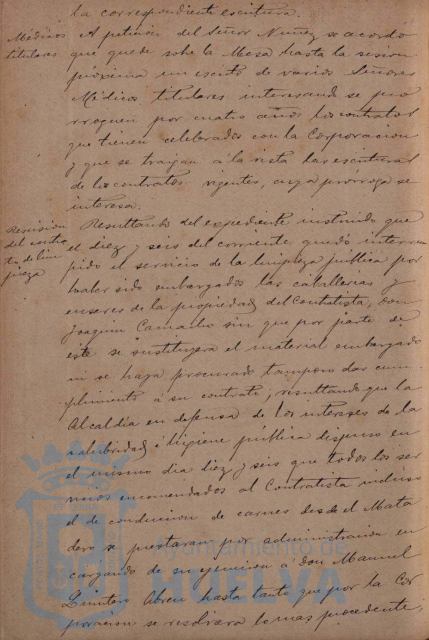 la correspondiente escritura.
Médicos titulares
A petición del Señor Nuñez se acordó
que quede sobre la Mesa hasta la sesion
próxima un escrito de varios Señores
Médicos titulares interesando se pro
rroguen por cuatro años los contratos
que tienen celebrados con la Corporacion
y que se traigan á la vista las escrituras
de los contratos vigentes, cuya prórroga se
interesa.
Rescision
del contra
to de lim
pieza
Resultando del expediente instruido que
el diez y seis del corriente quedó interrum
pido el servicio de la limpieza pública por
haber sido embargados las caballerias y
enseres de la propiedad del Contratista, don
Joaquin Camacho sin que por parte de
éste se sustituyera el material embargado
ni se haya procurado tampoco dar cum
plimiento á su contrato; resultando que la
Alcaldía en defensa de los intereses de la
salubridad é higiene pública dispuso en
el mismo dia diez y seis que todos los ser
vicios encomendados al Contratista incluso
el de conduccion de carnes desde el Mata
dero se prestaran por administracion en
cargando de su ejecucion á Don Manuel
Quintero Abreu hasta tanto que por la Cor
poracion se resolviera lo mas procedente;
Ayuntamiento de
HUELVA